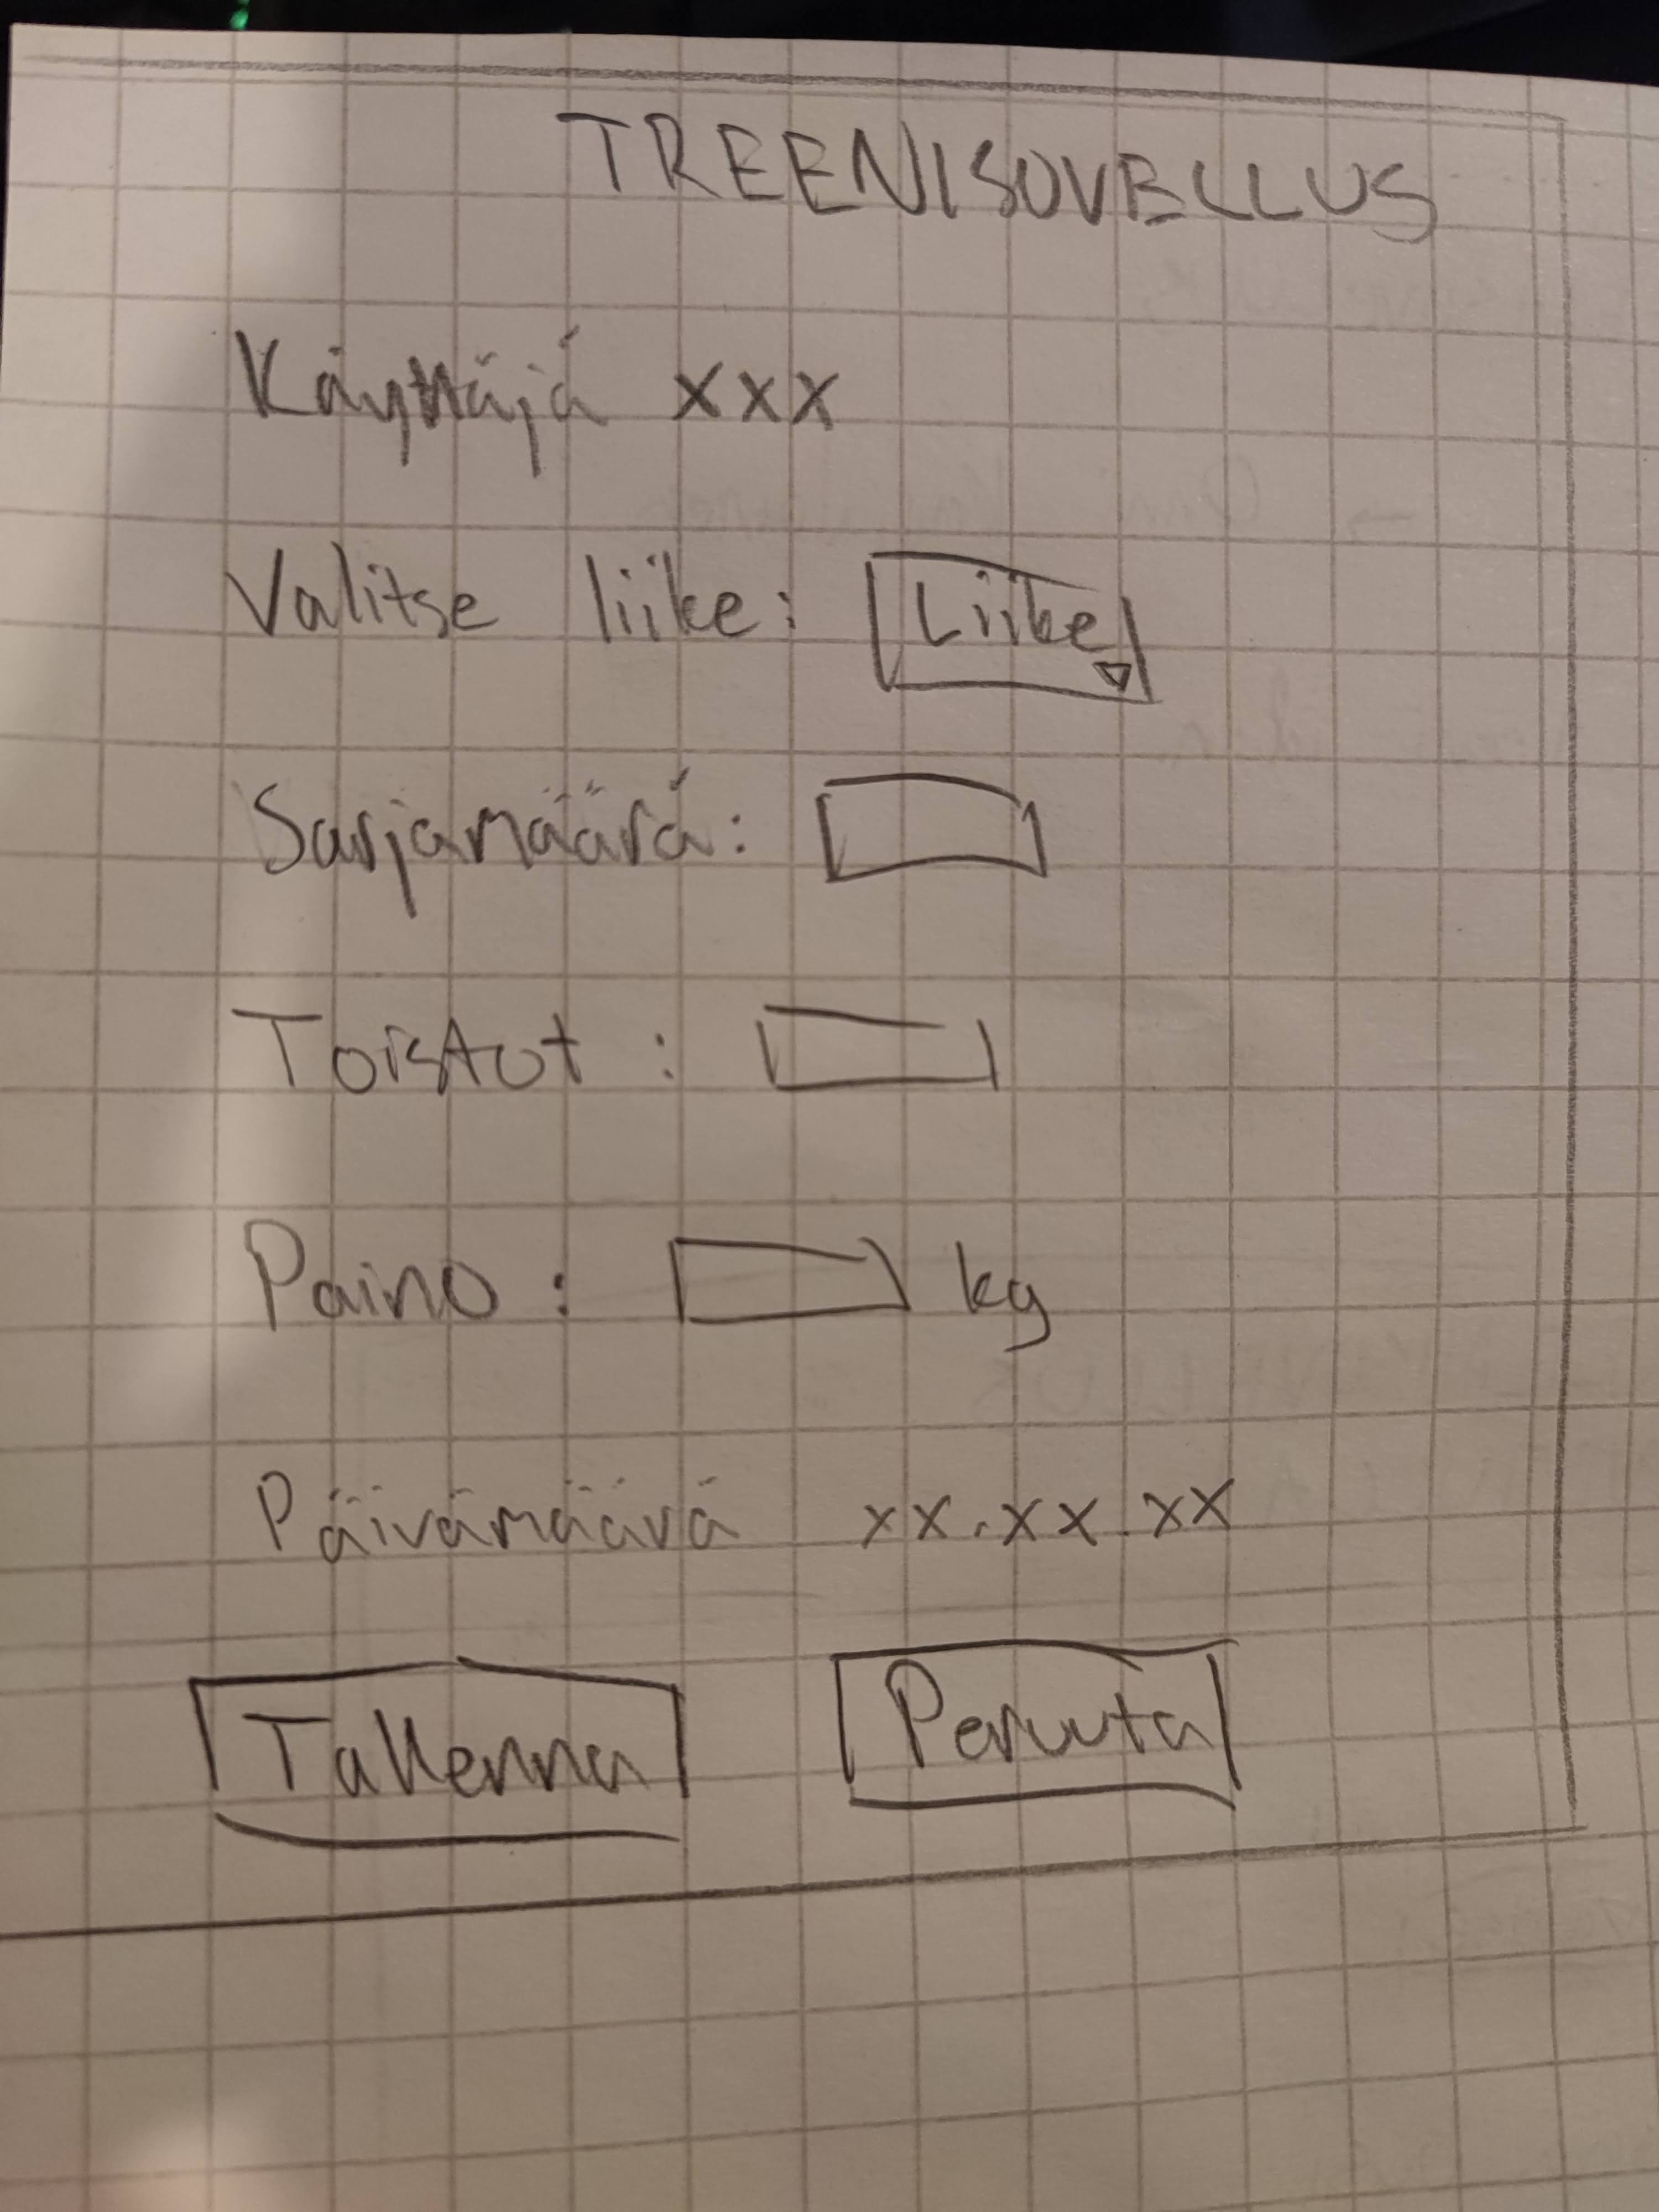 TREENISOVELLUS
Käyttäjä xxx
Valitse liike: Liike
Sarjamäärä:
Toistot :
Paino : kg
Päivämäärä xx.xx.xx
Tallenna Peruuta